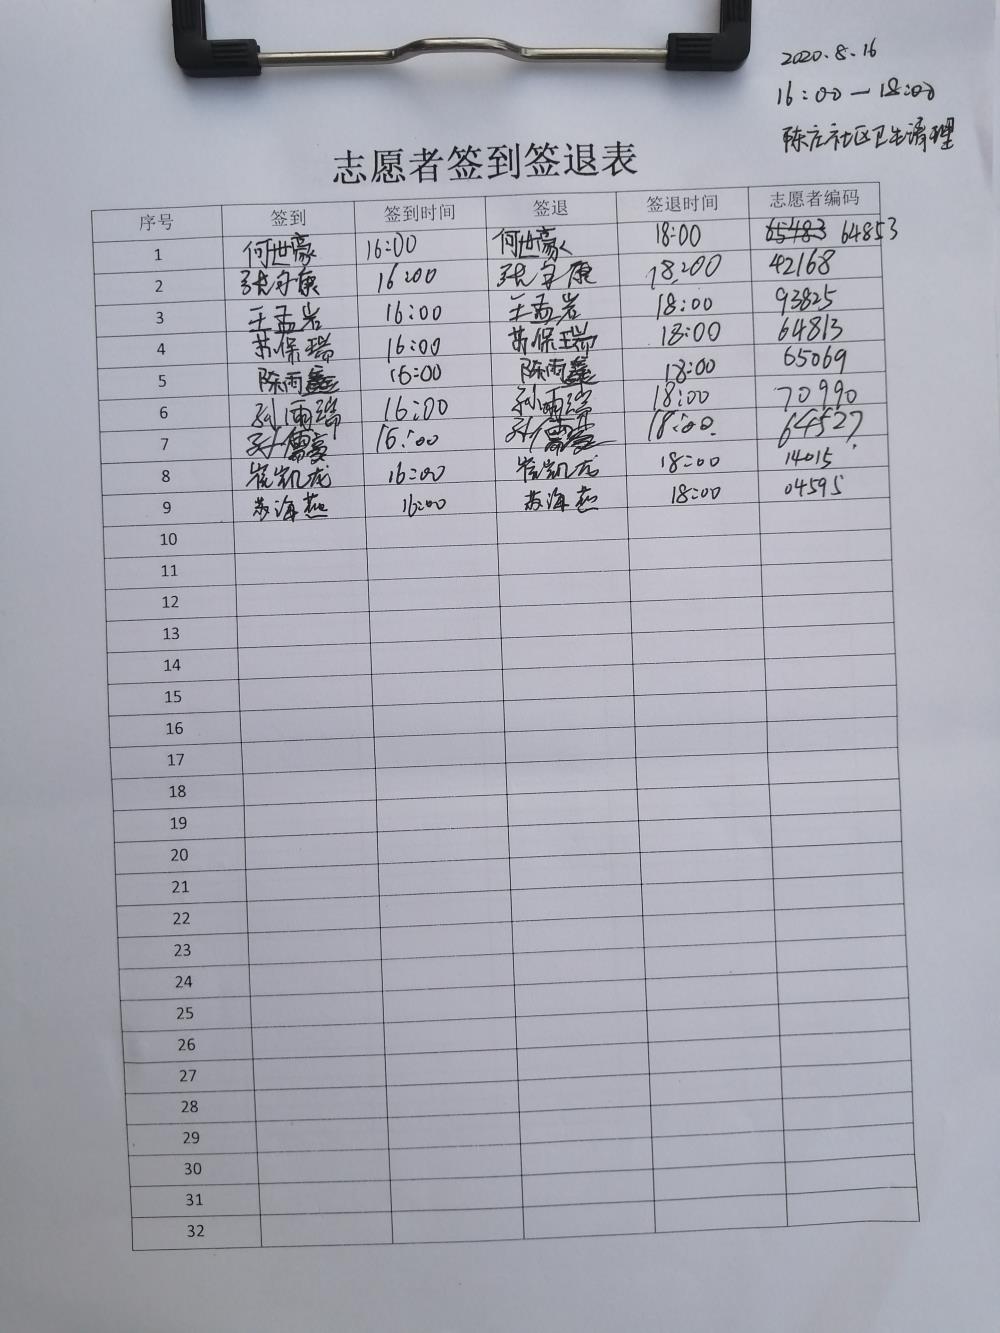 2020.8.16
16:00—18:00
陈庄社区卫生清理
志愿者签到签退表
序号 签到 签到时间 签退 签退时间 志愿者编码
1 何世豪 16:00 何世豪 18:00 65483 64853
2 张守康 16:00 张守康 18:00 42168
3 王孟岩 16:00 王孟岩 18:00 93825
4 苏保瑞 16:00 苏保瑞 18:00 64813
5 陈雨鑫 16:00 陈雨鑫 18:00 65069
6 孙雨瑞 16:00 孙雨瑞 18:00 70990
7 孙儒豪 16:00 孙儒豪 18:00 64527
8 崔凯龙 16:00 崔凯龙 18:00 14015
9 苏海燕 16:00 苏海燕 18:00 04595
10
11
12
13
14
15
16
17
18
19
20
21
22
23
24
25
26
27
28
29
30
31
32